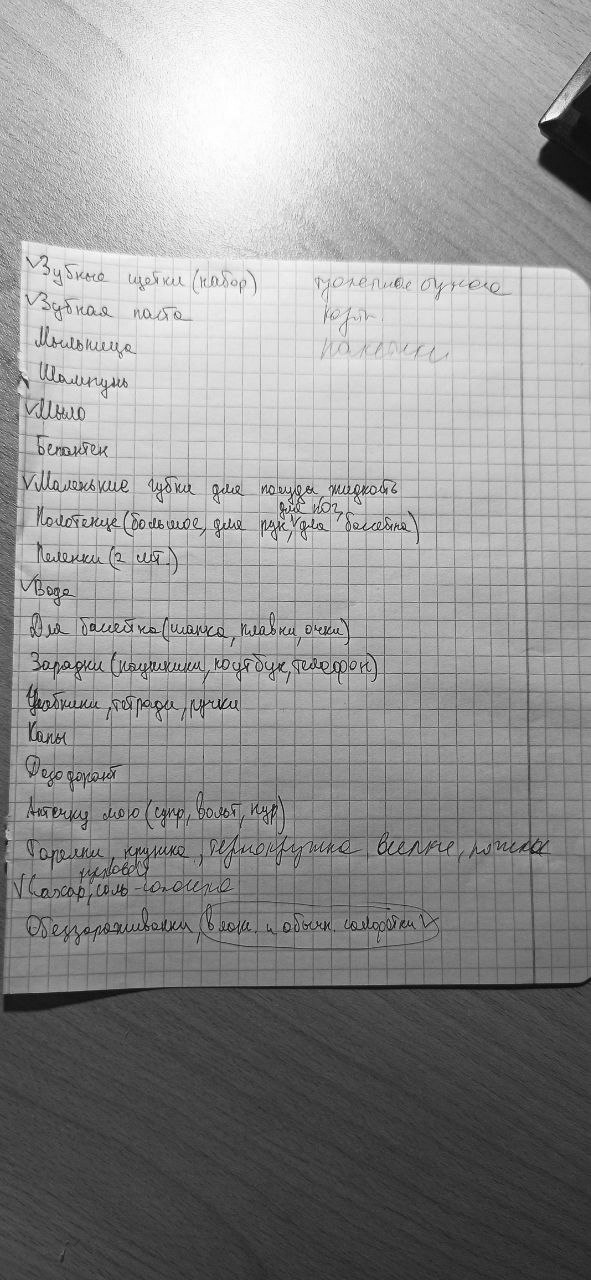 ✓Зубные щетки (набор)
туалетная бумага
✓Зубная паста
Мыльница
Шампунь
✓Мыло
Бепантен
✓Маленькие губки для посуды жидкость
для ног,
Полотенце (большое, для рук,✓для бассейна)
Пеленки (2 шт.)
✓Вода
Для бассейна (шапка, плавки, очки)
Зарядки (наушники, ноутбук, телефон)
Учебники, тетради, ручки
Капы
Дезодорант
Аптечку мою (супр, вольт, нур)
Тарелки, кружка, термокружка, вилки, ложка
✓Сахар, соль
Обеззараживатели, влаж. и обычн. салфетки ✓